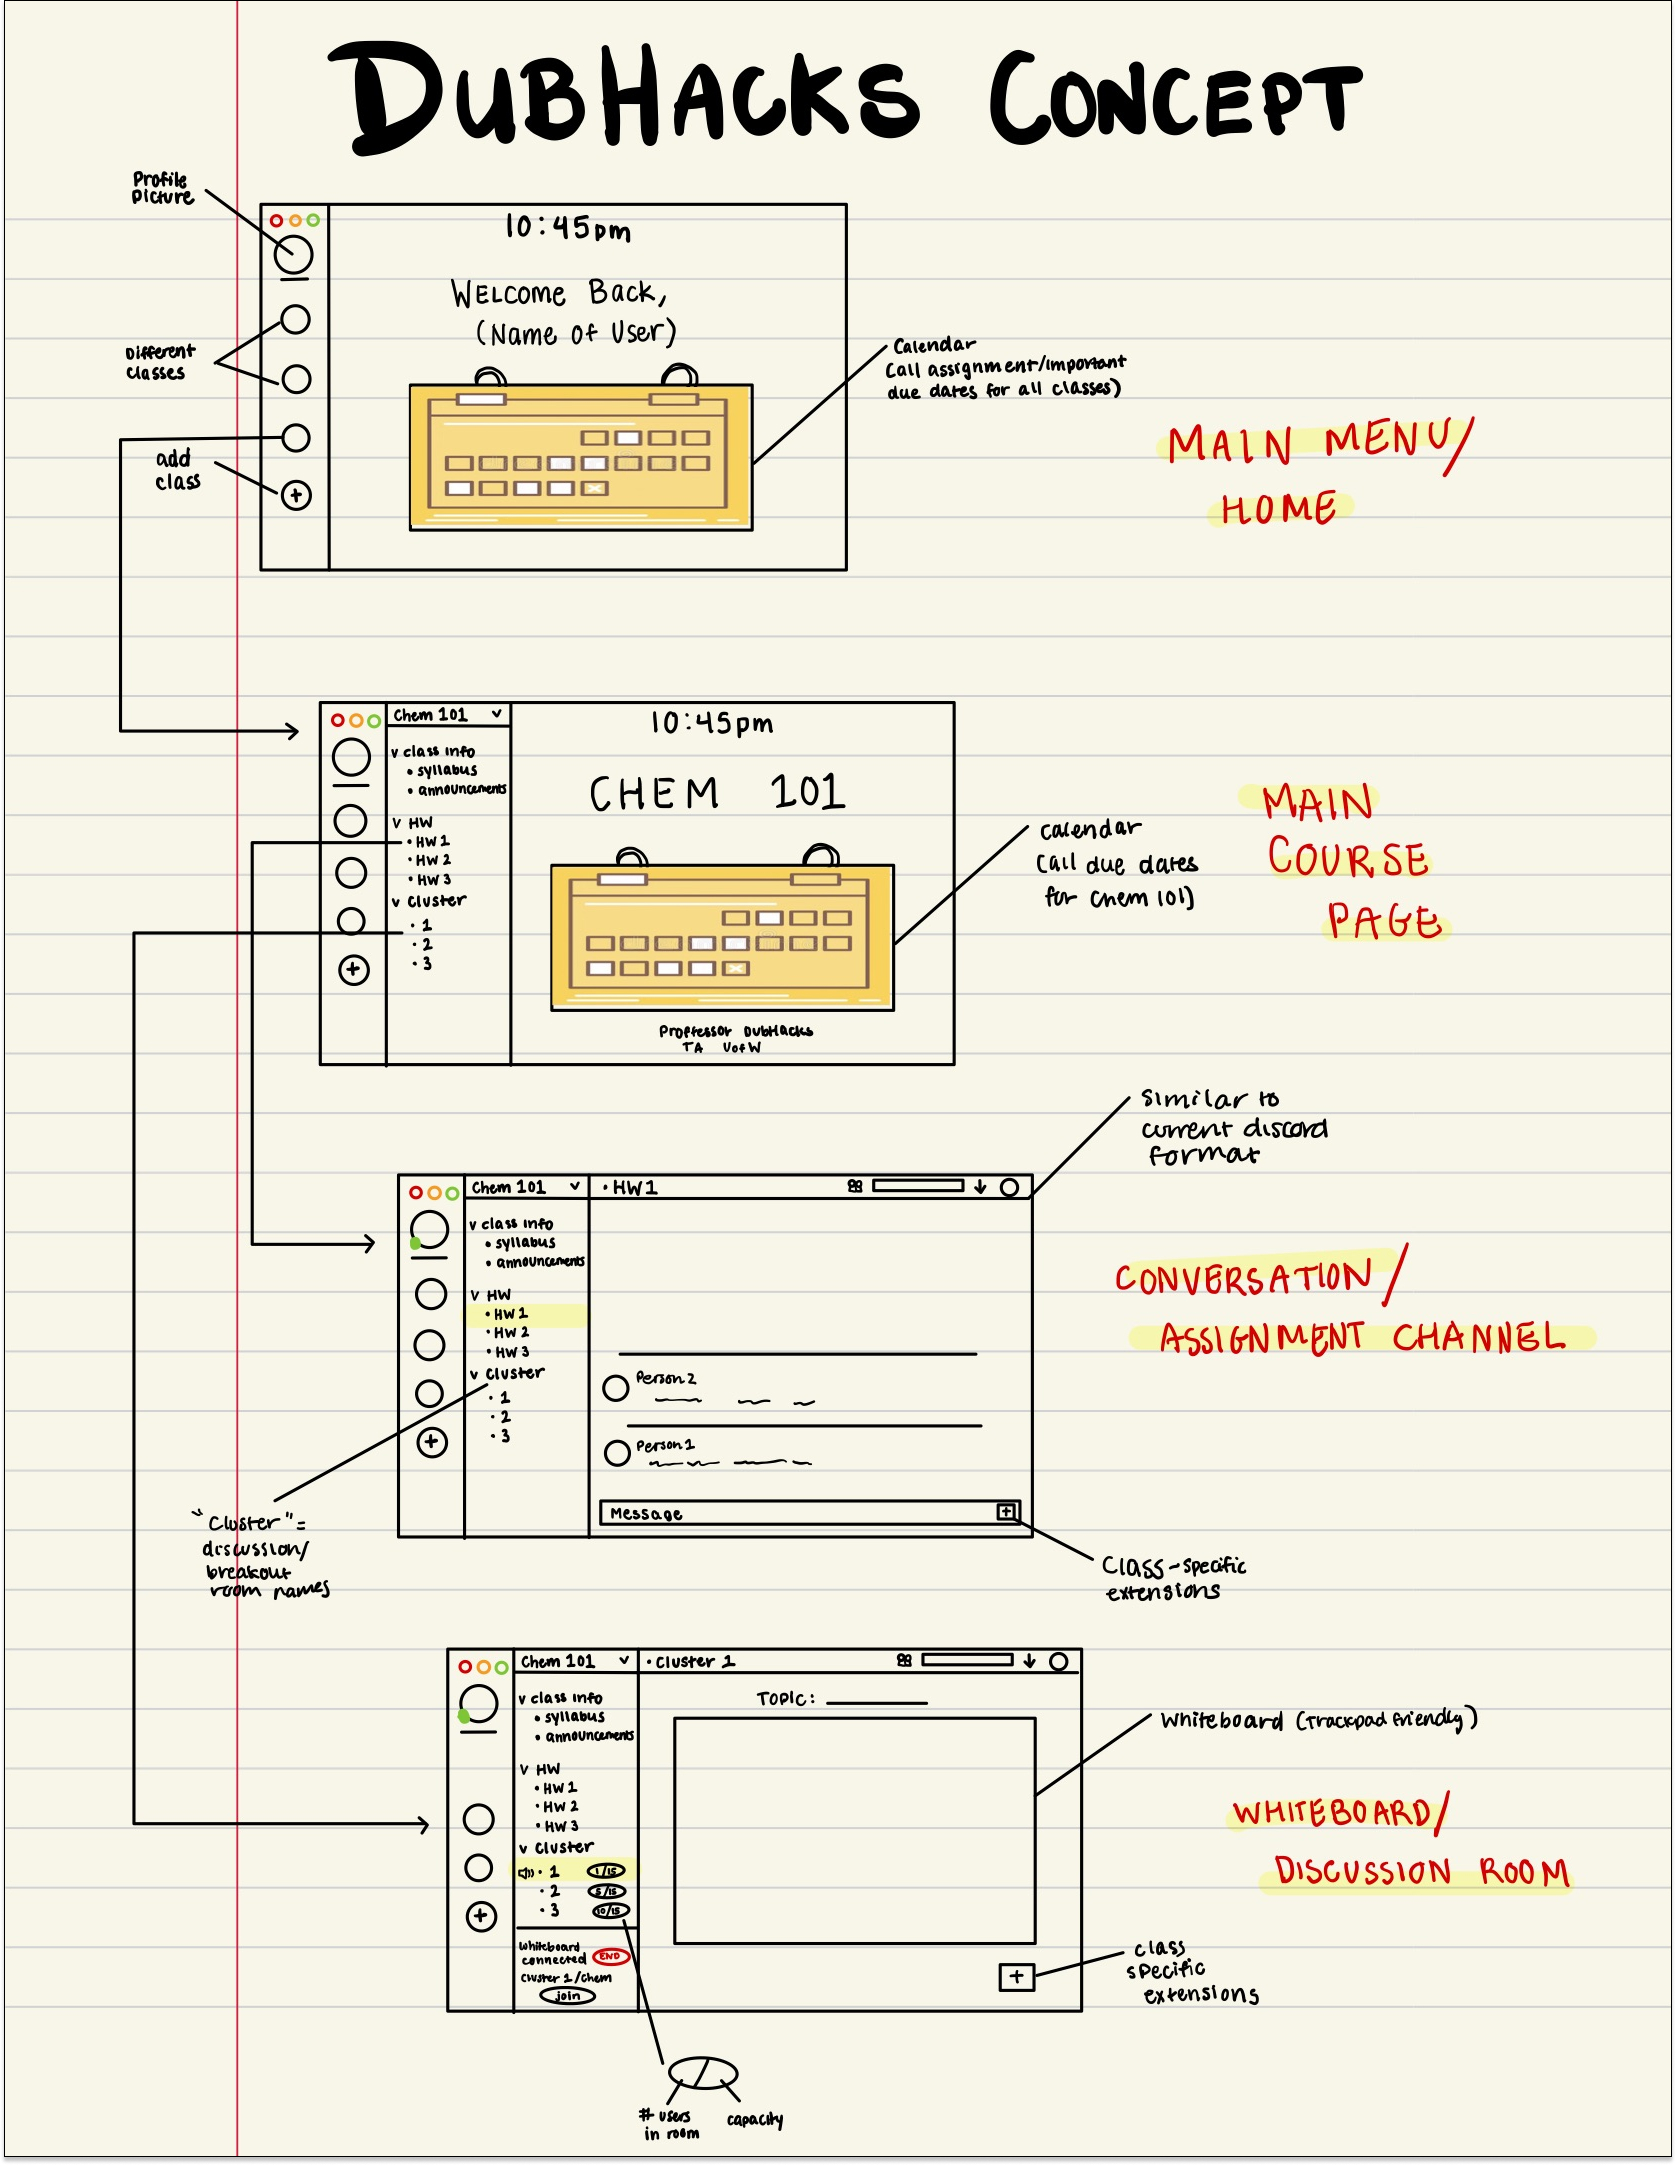 DUBHACKS CONCEPT
Profile
Picture
10:45pm
WELCOME Back,
(Name of User)
Different
classes
Calendar
(all assignment/important
due dates for all classes)
MAIN MENU/
HOME
add
class
+
Chem 101 v
v class info
• syllabus
• announcements
v HW
• HW 1
• HW 2
• HW 3
v cluster
• 1
• 2
• 3
+
10:45pm
CHEM 101
Calendar
(all due dates
for Chem 101)
Propfessor DubHacks
TA UofW
MAIN
COURSE
PAGE
Similar to
current discord
format
Chem 101 v
• HW1
v class info
• syllabus
• announcements
v HW
• HW 1
• HW 2
• HW 3
v cluster
• 1
• 2
• 3
+
Person 2
Person 1
Message +
CONVERSATION/
ASSIGNMENT CHANNEL
"Cluster" =
discussion/
breakout
room names
Class-specific
extensions
Chem 101 v
• Cluster 1
v class info
• syllabus
• announcements
v HW
• HW 1
• HW 2
• HW 3
v cluster
• 1 1/15
• 2 5/15
• 3 10/15
+
whiteboard
connected END
cluster 1/chem
join
TOPIC:
+
Whiteboard (Trackpad friendly)
WHITEBOARD/
DISCUSSION ROOM
class
specific
extensions
# users
in room
capacity